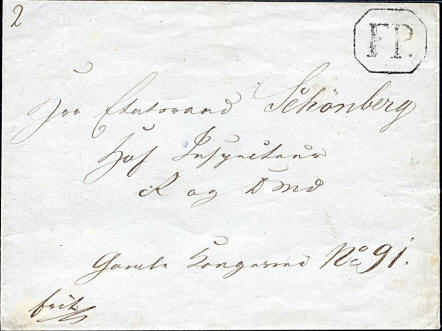 2
F.P.
Hrr Etatsraad Schönberg
Hof Inspecteur
R og DMd
Gamle Kongevei No 91.
frit